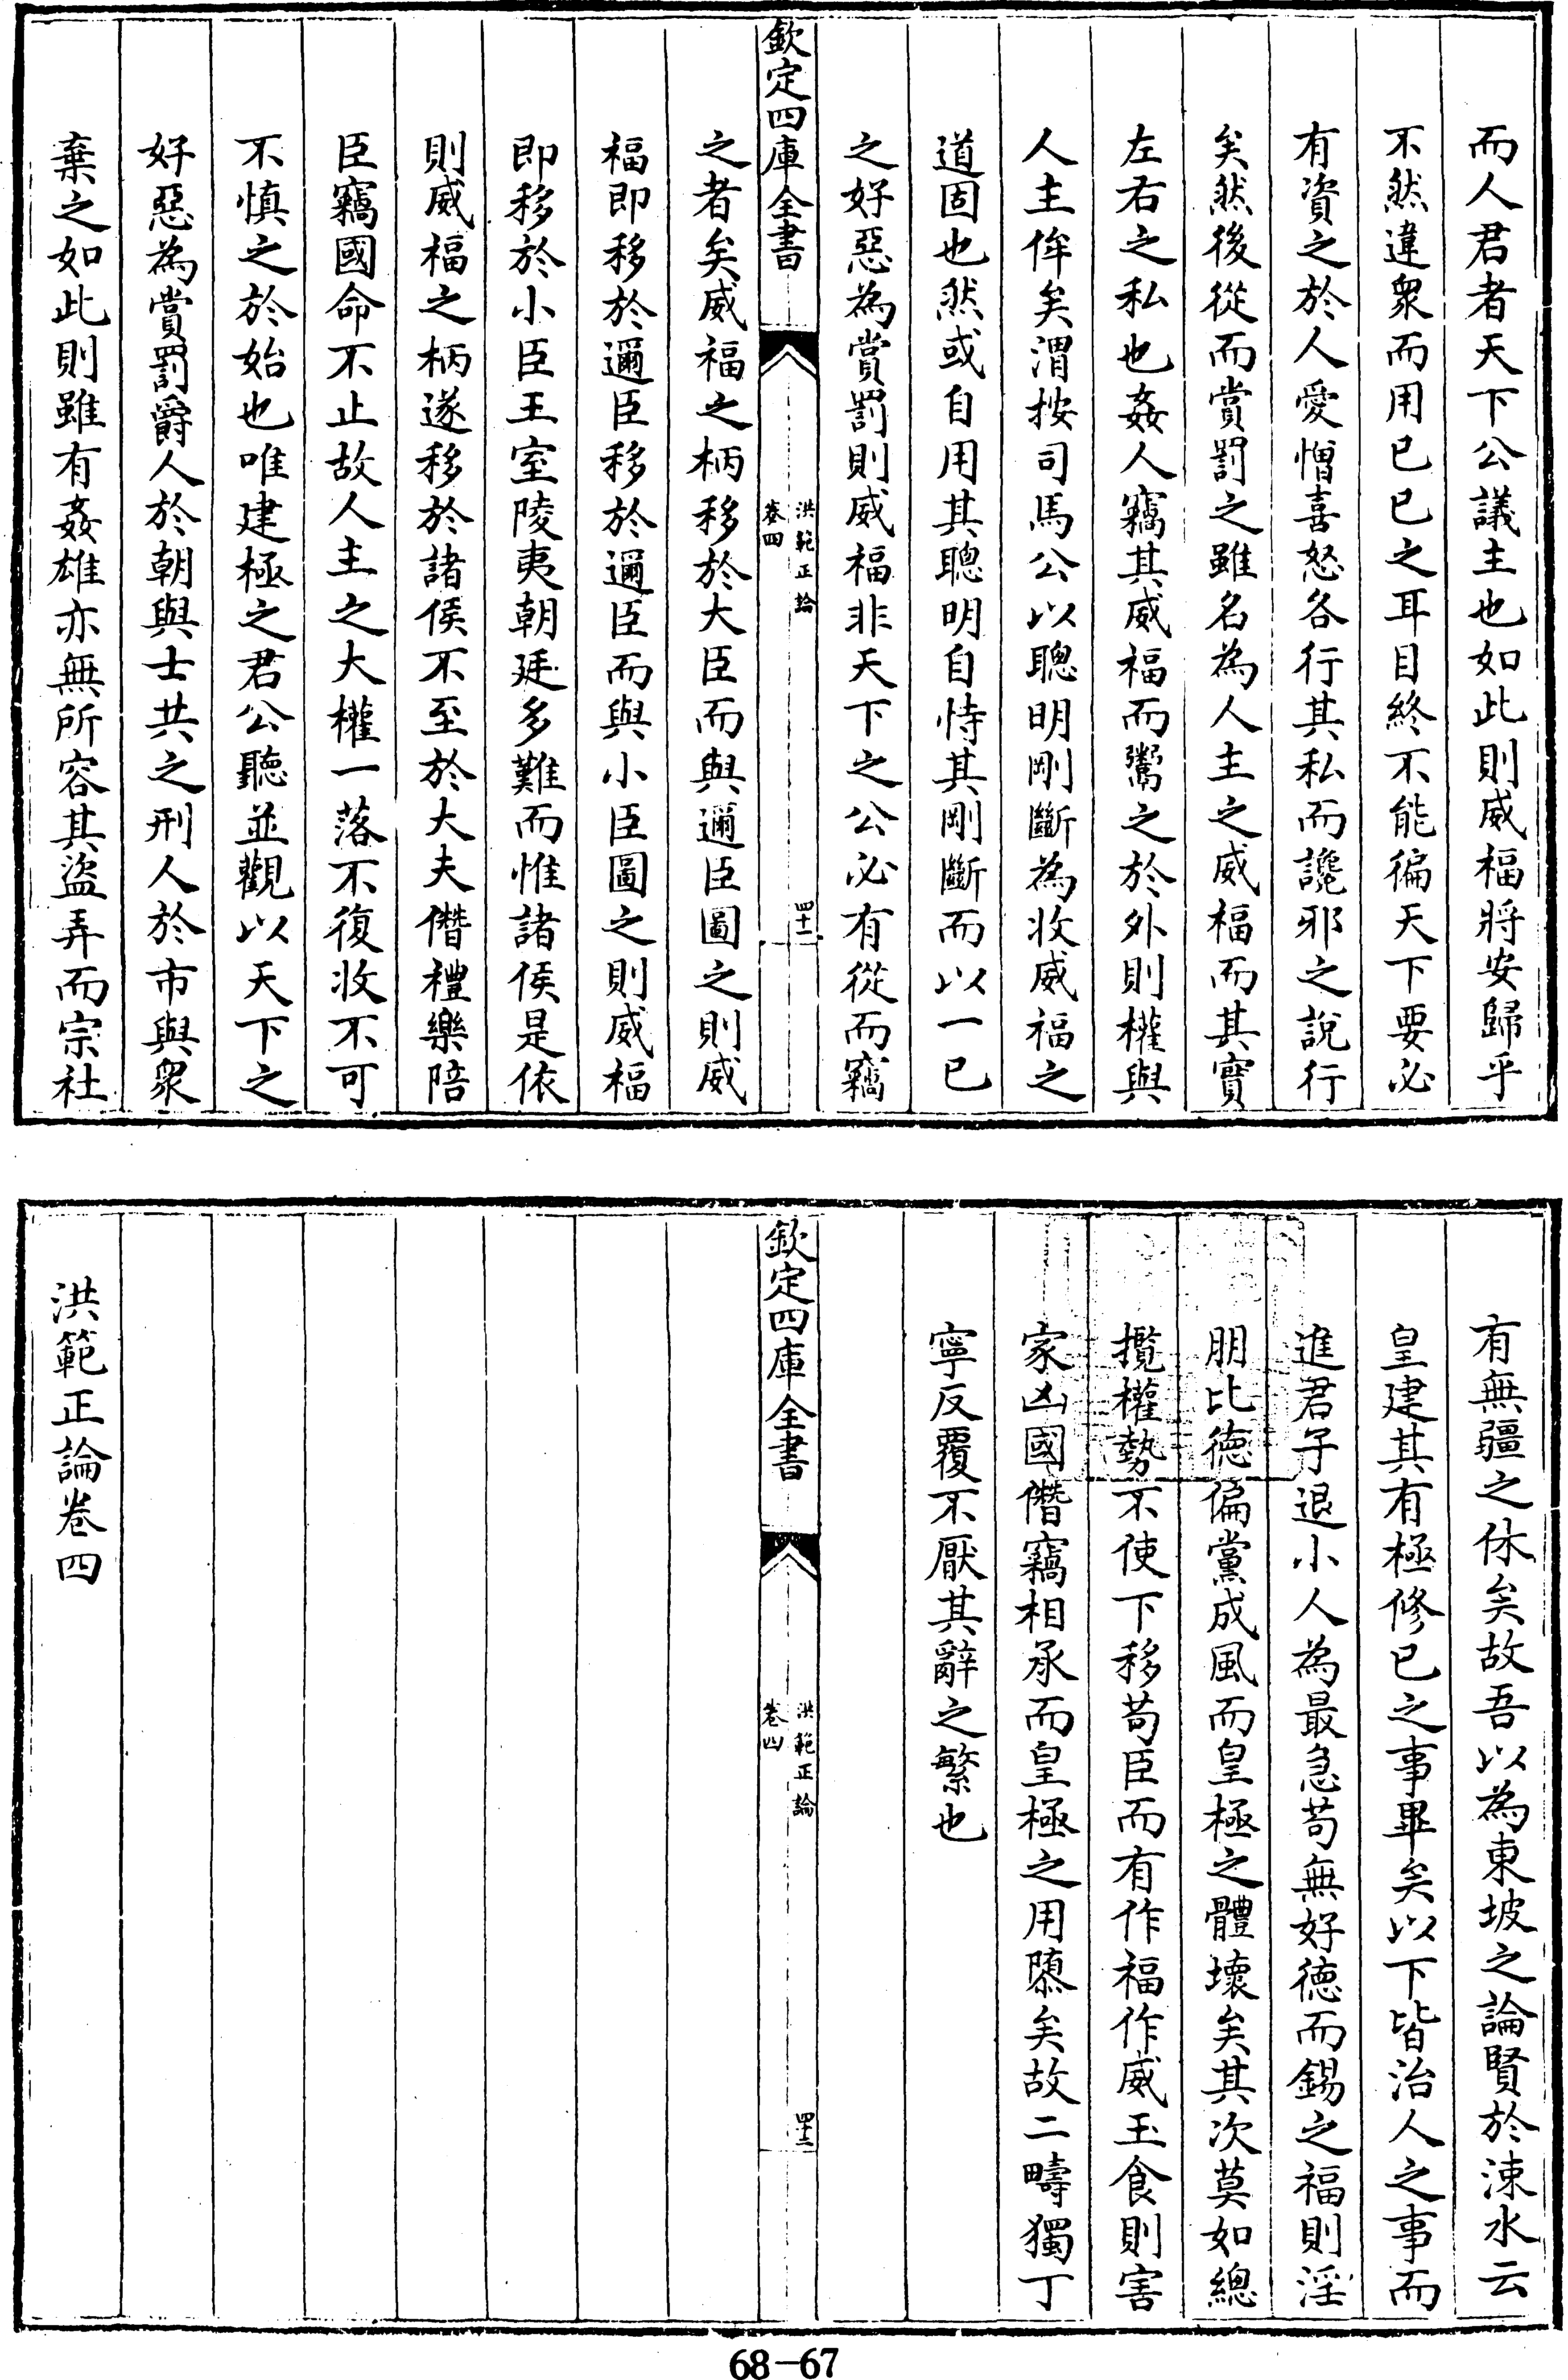 而人君者天下公議主也如此則威福將安歸乎
不然違衆而用已已之耳目終不能徧天下要必
有資之於人愛憎喜怒各行其私而讒邪之說行
矣然後從而賞罰之雖名為人主之威福而其實
左右之私也姦人竊其威福而鬻之於外則權與
人主侔矣渭按司馬公以聰明剛斷為收威福之
道固也然或自用其聰明自恃其剛斷而以一已
之好惡為賞罰則威福非天下之公必有從而竊
欽定四庫全書
洪範正論
卷四
四十一
之者矣威福之柄移於大臣而與邇臣圖之則威
福即移於邇臣移於邇臣而與小臣圖之則威福
即移於小臣王室陵夷朝廷多難而惟諸侯是依
則威福之柄遂移於諸侯不至於大夫僭禮樂陪
臣竊國命不止故人主之大權一落不復收不可
不慎之於始也唯建極之君公聽並觀以天下之
好惡為賞罰爵人於朝與士共之刑人於市與衆
棄之如此則雖有姦雄亦無所容其盜弄而宗社
有無疆之休矣故吾以為東坡之論賢於涑水云
皇建其有極修已之事畢矣以下皆治人之事而
進君子退小人為最急苟無好德而錫之福則淫
朋比德偏黨成風而皇極之體壞矣其次莫如總
攬權勢不使下移苟臣而有作福作威玉食則害
家凶國僭竊相承而皇極之用隳矣故二疇獨丁
寧反覆不厭其辭之繁也
欽定四庫全書
洪範正論
卷四
四十二
洪範正論卷四
68-67